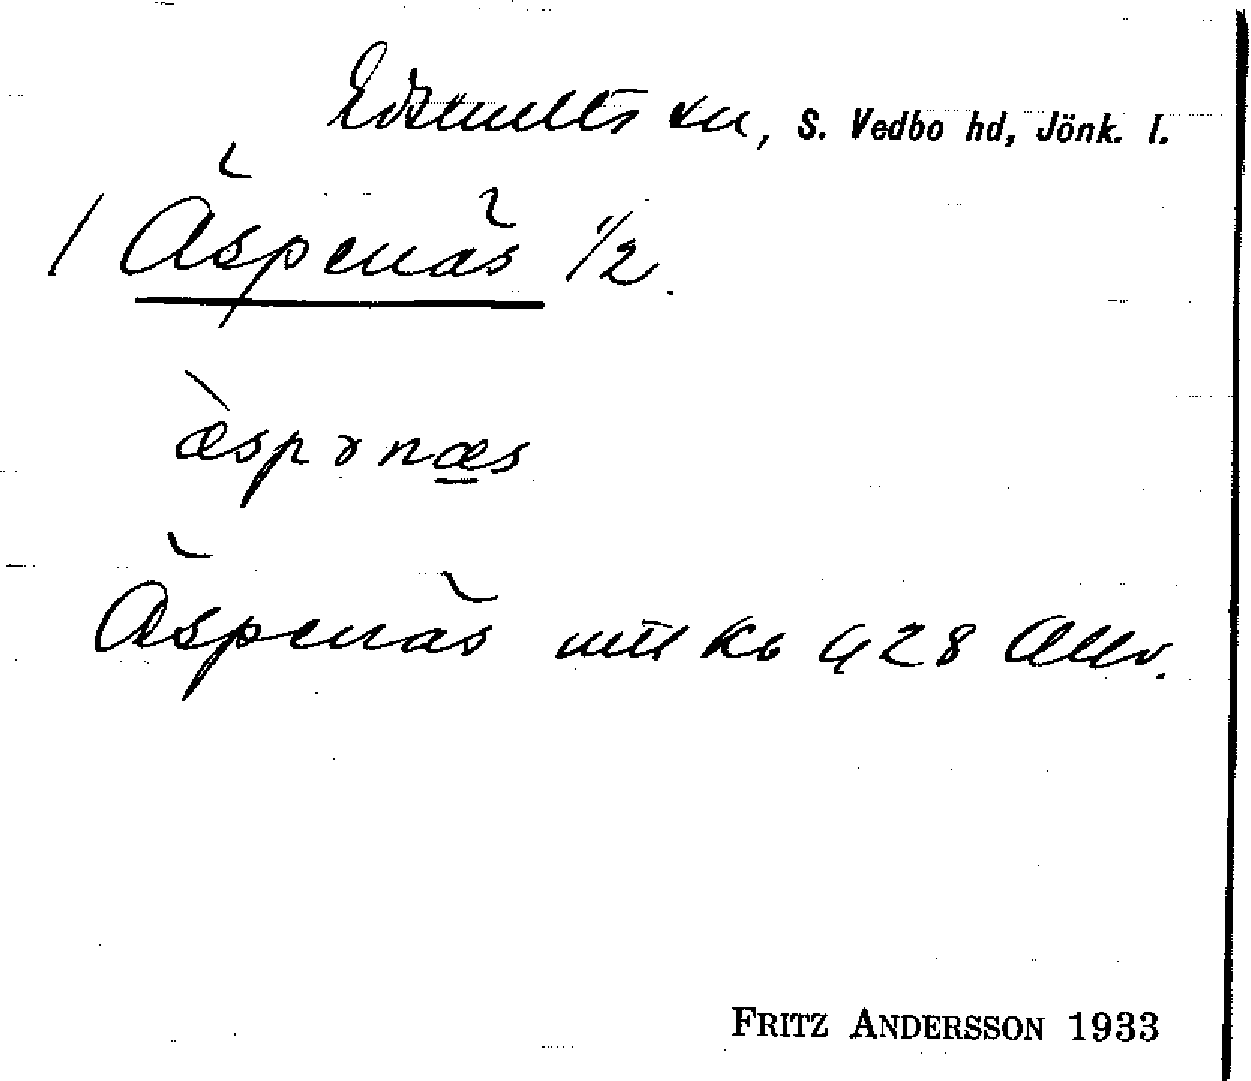 Edshults sn, S. Vedbo hd, Jönk. l.
/ Äspenäs 1/2.
æspənæs
Äspenäs uttil Kb 928 Allv.
FRITZ ANDERSSON 1933